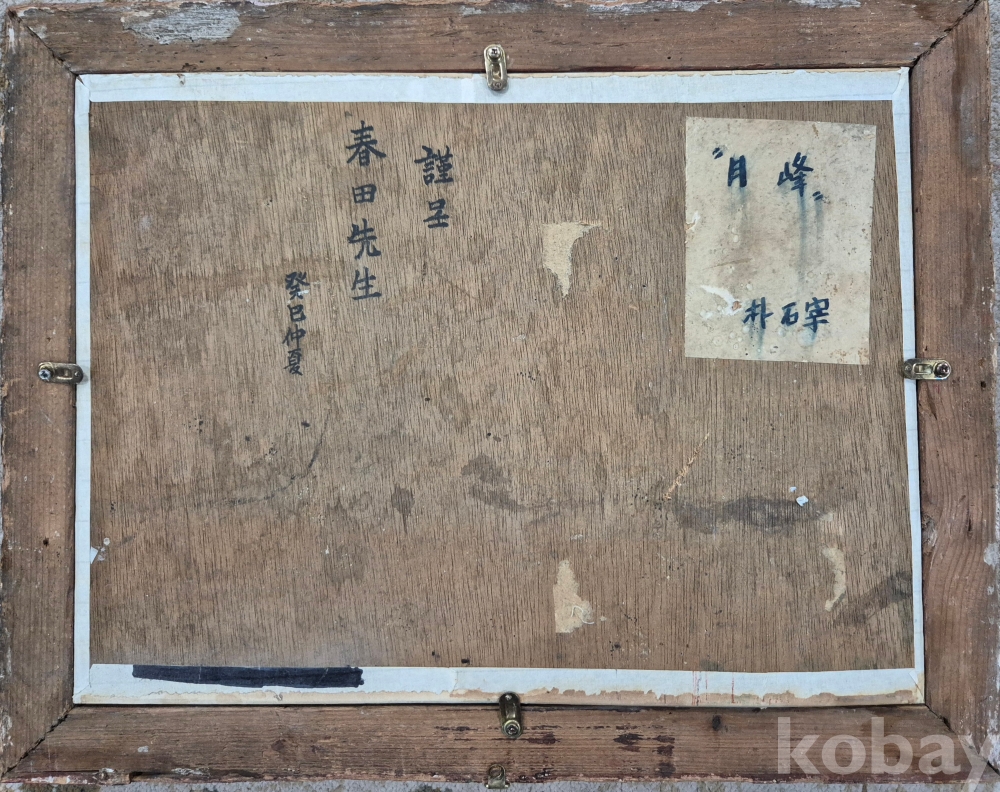 〃月 峰〃
朴石寀
謹呈
春田先生
癸巳仲夏
kobay